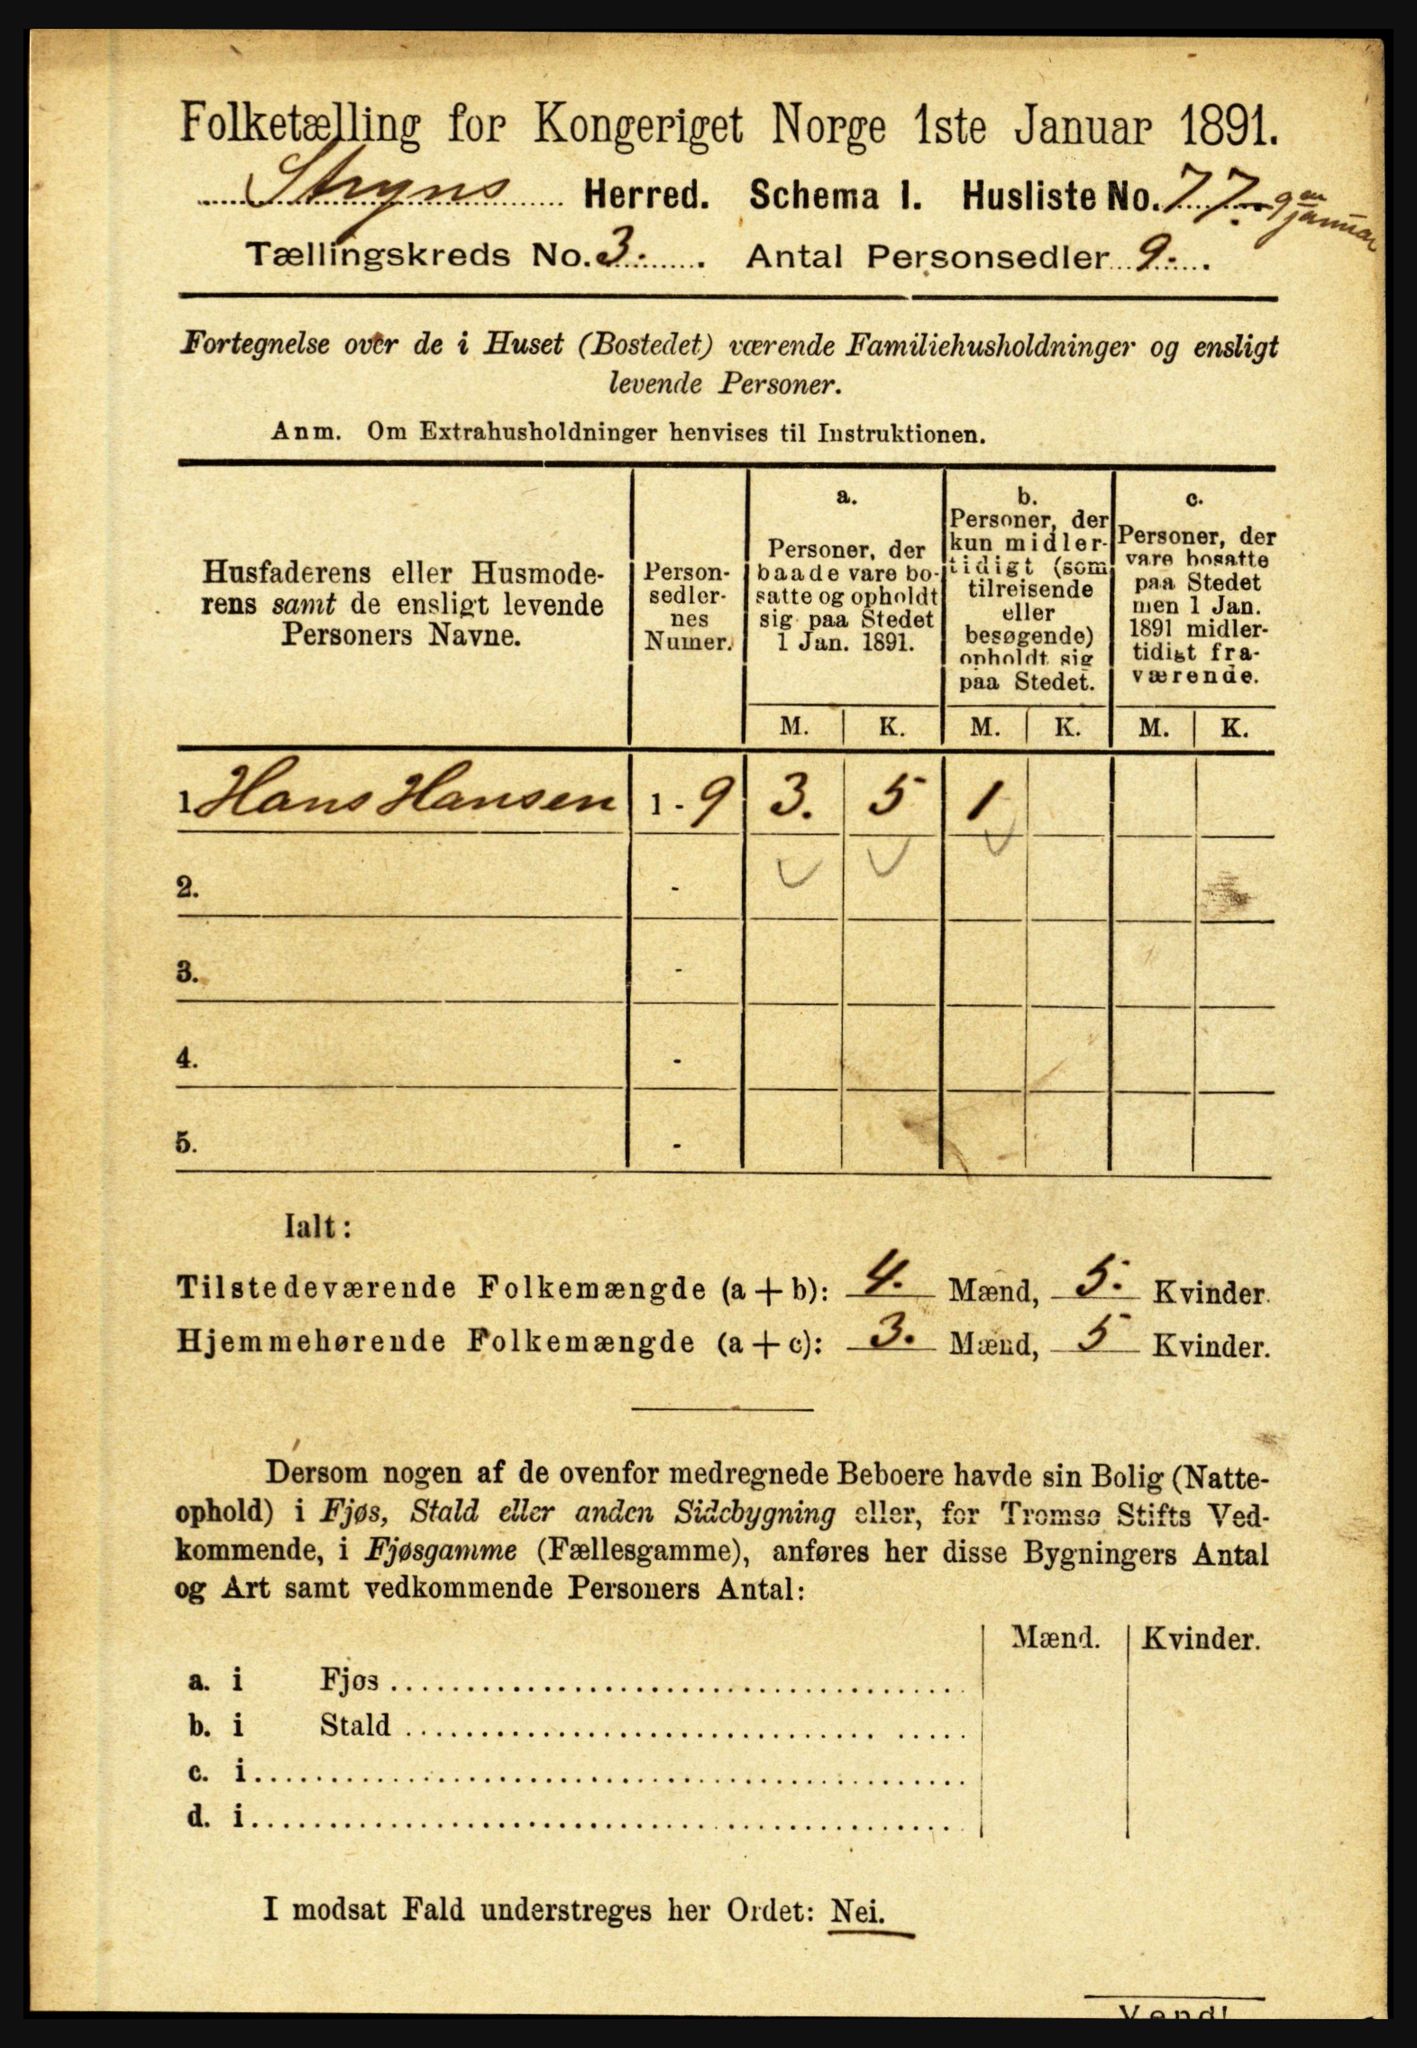 Folketælling for Kongeriget Norge 1ste Januar 1891.
Stryns Herred. Schema I. Husliste No. 77.
Januar
Tællingskreds No. 3. Antal Personsedler 9.
Fortegnelse over de i Huset (Bostedet) værende Familiehusholdninger og ensligt
levende Personer.
Anm. Om Extrahusholdninger henvises til Instruktionen.
Husfaderens eller Husmode-
rens samt de ensligt levende
Personers Navne.
Person-
sedler-
nes
Numer.
a.
Personer, der
baade vare bo-
satte og opholdt
sig paa Stedet
1 Jan. 1891.
b.
Personer, der
kun midler-
tidigt (som
tilreisende
eller
besøgende)
opholdt sig
paa Stedet.
c.
Personer, der
vare bosatte
paa Stedet
men 1 Jan.
1891 midler-
tidigt fra-
værende.
M. K. M. K. M. K.
1 Hans Hansen 1 - 9 3. 5 1
2. -
3. -
4. -
5. -
Ialt:
Tilstedeværende Folkemængde (a + b): 4. Mænd, 5. Kvinder.
Hjemmehørende Folkemængde (a + c): 3. Mænd, 5 Kvinder.
Dersom nogen af de ovenfor medregnede Beboere havde sin Bolig (Natte-
ophold) i Fjøs, Stald eller anden Sidebygning eller, for Tromsø Stifts Ved-
kommende, i Fjøsgamme (Fællesgamme), anføres her disse Bygningers Antal
og Art samt vedkommende Personers Antal:
Mænd. Kvinder.
a. i Fjøs
b. i Stald
c. i
d. i
I modsat Fald understreges her Ordet: Nei.
Vend!